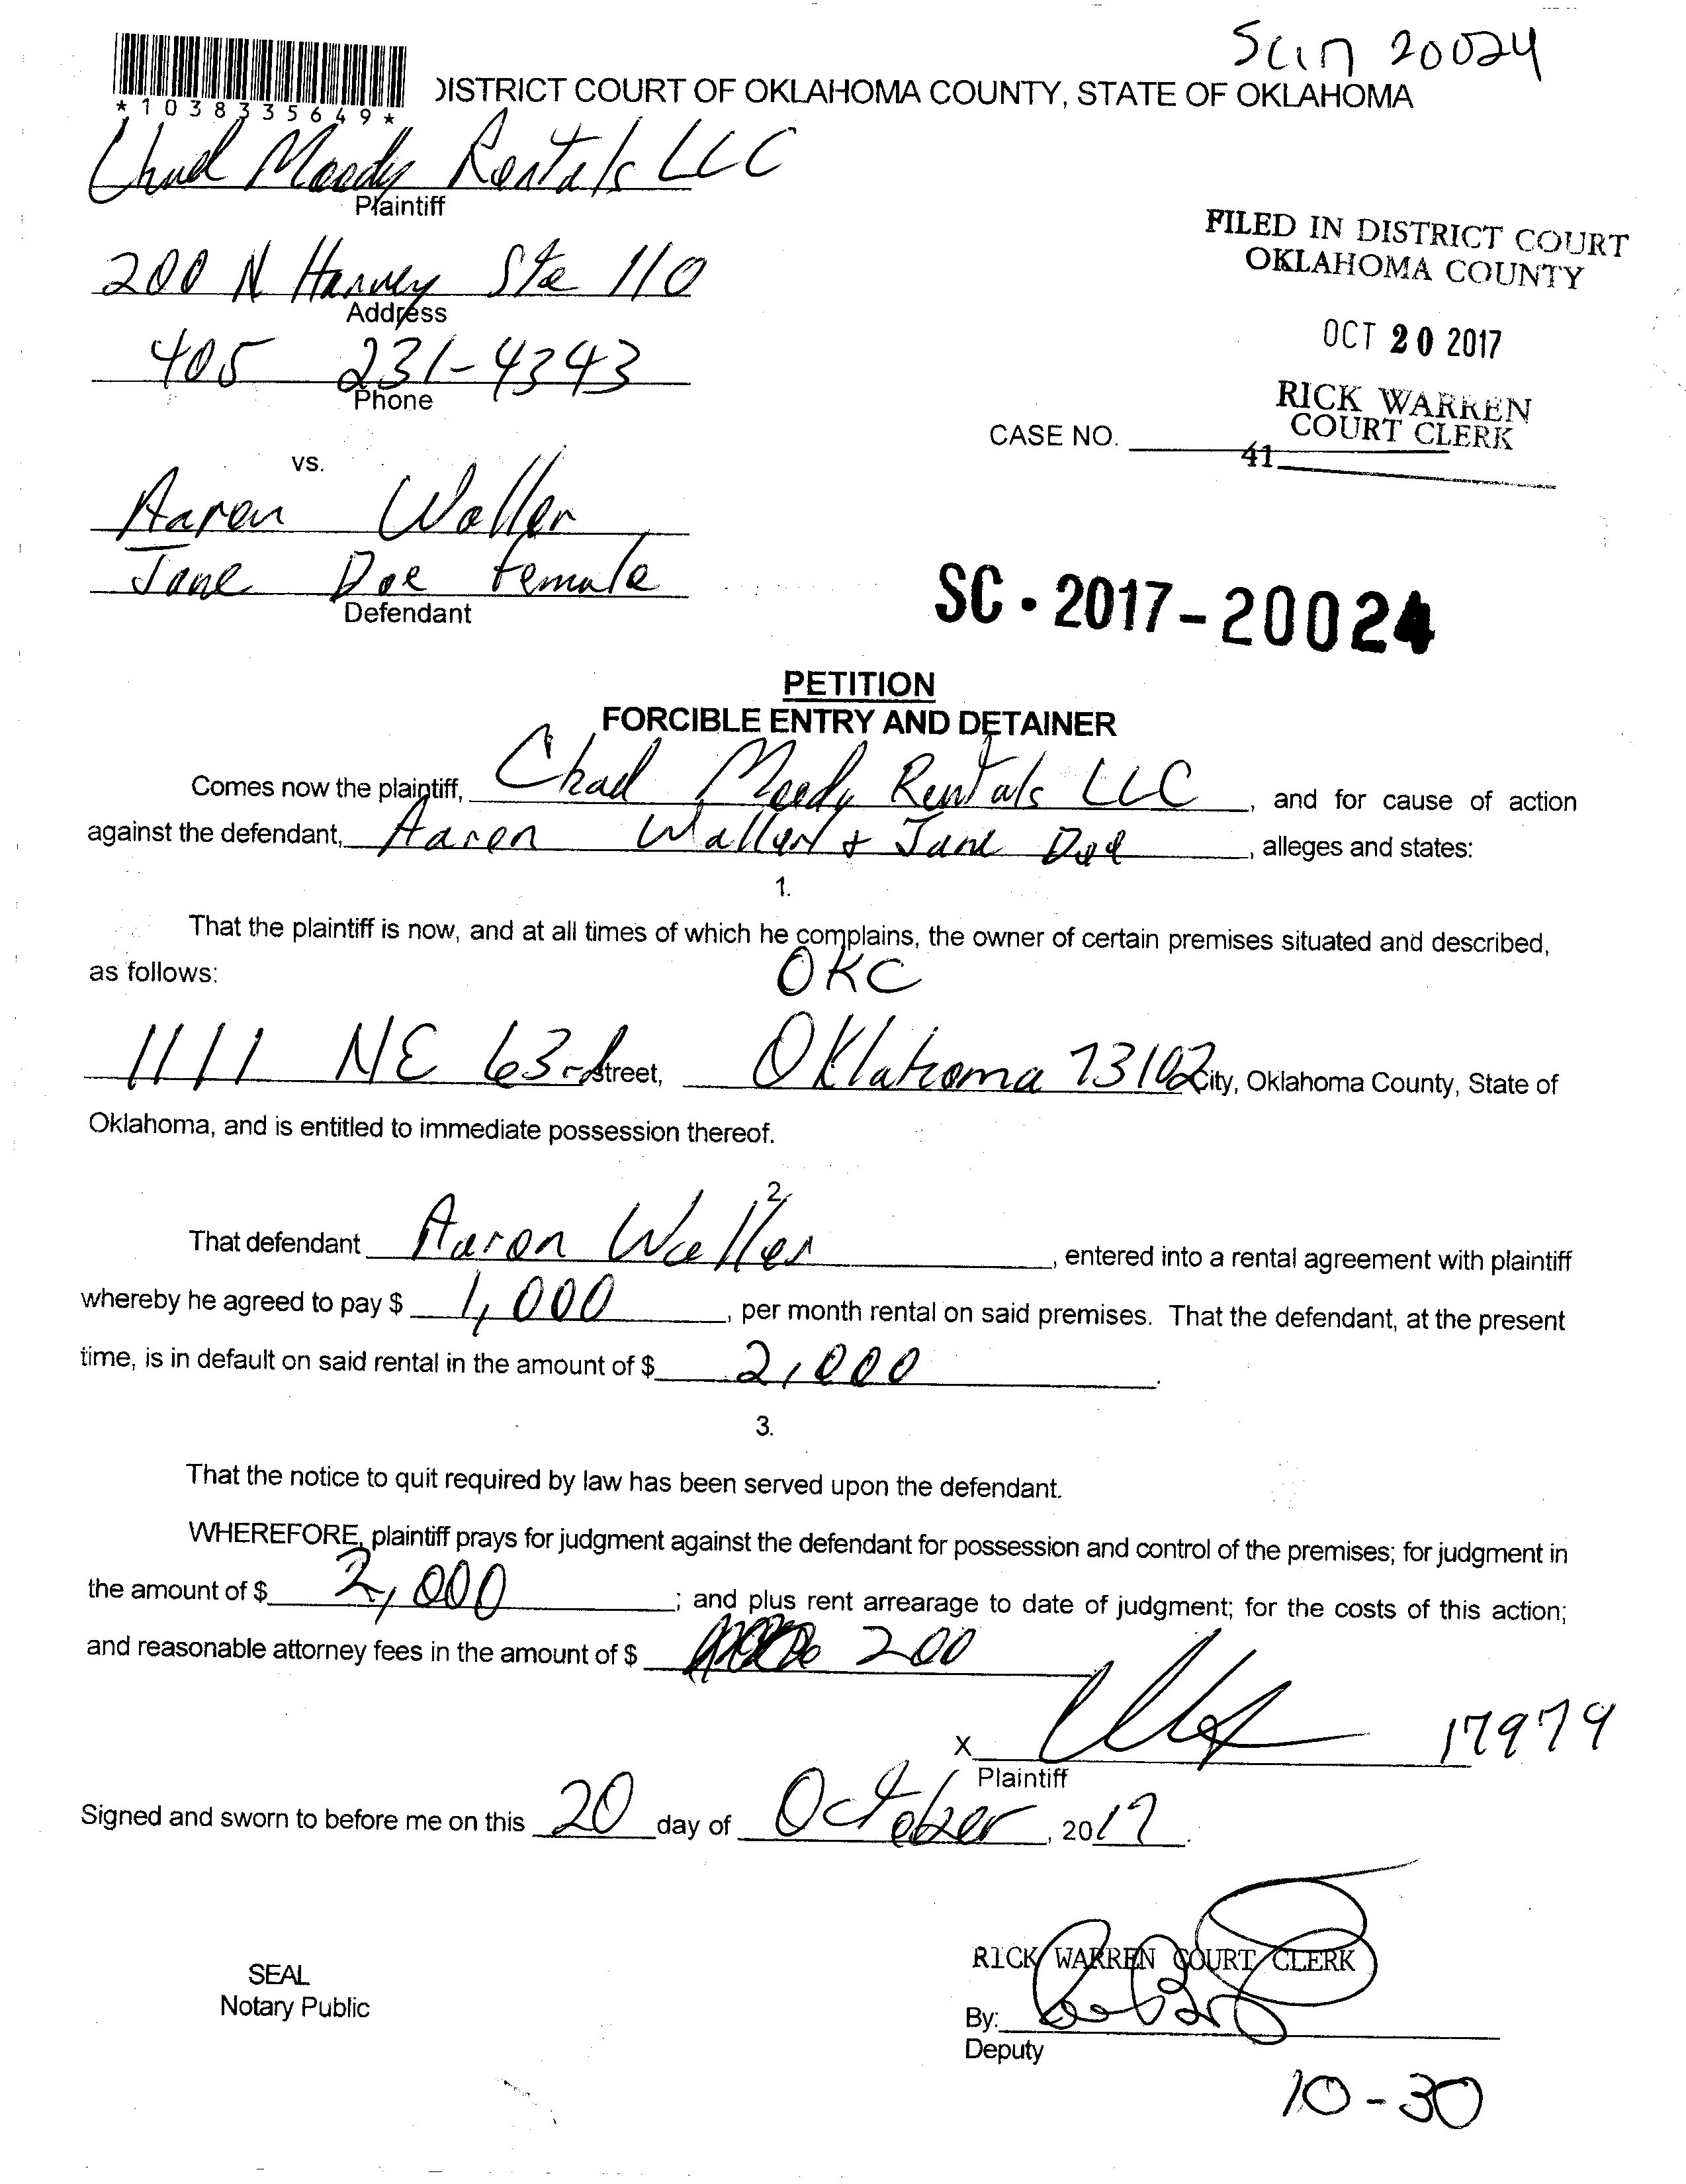 SC17 20024
*1038335649*
DISTRICT COURT OF OKLAHOMA COUNTY, STATE OF OKLAHOMA
Chad Moody Rentals LLC
Plaintiff
200 N Harvey Ste 110
Address
405 231-4343
Phone
FILED IN DISTRICT COURT
OKLAHOMA COUNTY
OCT 20 2017
RICK WARREN
COURT CLERK
CASE NO.
41
vs.
Aaron Waller
Jane Doe Female
Defendant
SC - 2017-20024
PETITION
FORCIBLE ENTRY AND DETAINER
Comes now the plaintiff, Chad Moody Rentals LLC, and for cause of action
against the defendant, Aaron Waller + Jane Doe, alleges and states:
1.
That the plaintiff is now, and at all times of which he complains, the owner of certain premises situated and described,
as follows:
OKC
1111 NE 63rd Street, Oklahoma 73102 City, Oklahoma County, State of
Oklahoma, and is entitled to immediate possession thereof.
2.
That defendant Aaron Waller, entered into a rental agreement with plaintiff
whereby he agreed to pay $ 1,000, per month rental on said premises. That the defendant, at the present
time, is in default on said rental in the amount of $ 2,000.
3.
That the notice to quit required by law has been served upon the defendant.
WHEREFORE, plaintiff prays for judgment against the defendant for possession and control of the premises; for judgment in
the amount of $ 2,000; and plus rent arrearage to date of judgment; for the costs of this action;
and reasonable attorney fees in the amount of $ 200
X 17979
Plaintiff
Signed and sworn to before me on this 20 day of October, 2017.
RICK WARREN COURT CLERK
SEAL
Notary Public
By:
Deputy
10-30